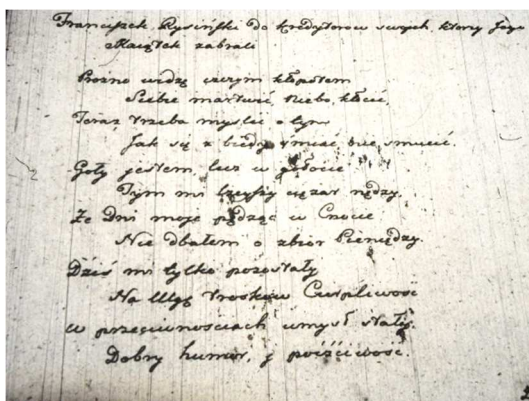 Franciszek Rysiński do kredytorow swych ktorzy Jego
Maiątek zabrali
Prozno widzę czczym kłopotem
Siebie martwić, Niebo kłócić,
Teraz trzeba myslić o tym
Jak się z biedy smiać nie smucić.
Goły jestem lecz w gołocie
Tym mi lżeyszy ciężar nędzy.
Że Dni moje pędząc w Cnocie
Nie dbałem o zbior Pieniędzy.
Dziś mi tylko pozostały
Na Ulgę troskow Cierpliwość
w przeciwnosciach umysł stały.
Dobry humor, y poćżciwość.